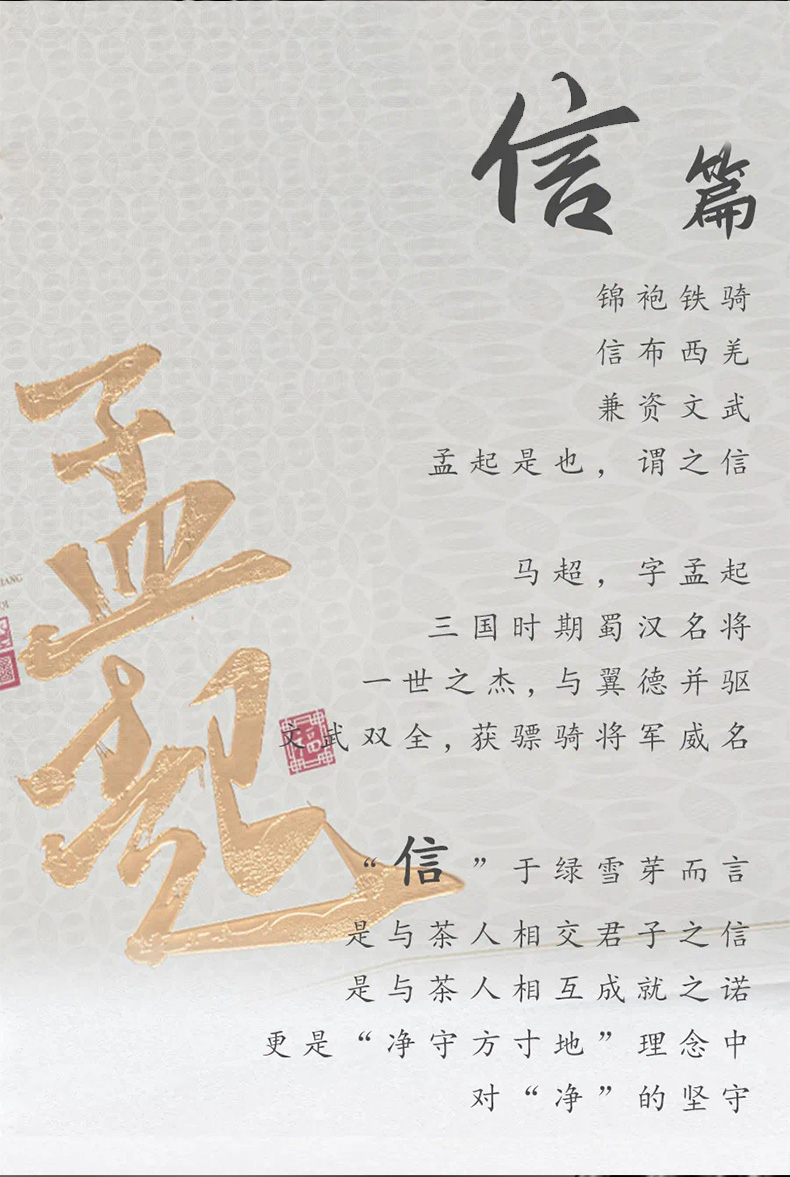 信篇
锦袍铁骑
信布西羌
兼资文武
孟起是也，谓之信
孟起
马超，字孟起
三国时期蜀汉名将
一世之杰，与翼德并驱
文武双全，获骠骑将军威名
“信”于绿雪芽而言
是与茶人相交君子之信
是与茶人相互成就之诺
更是“净守方寸地”理念中
对“净”的坚守